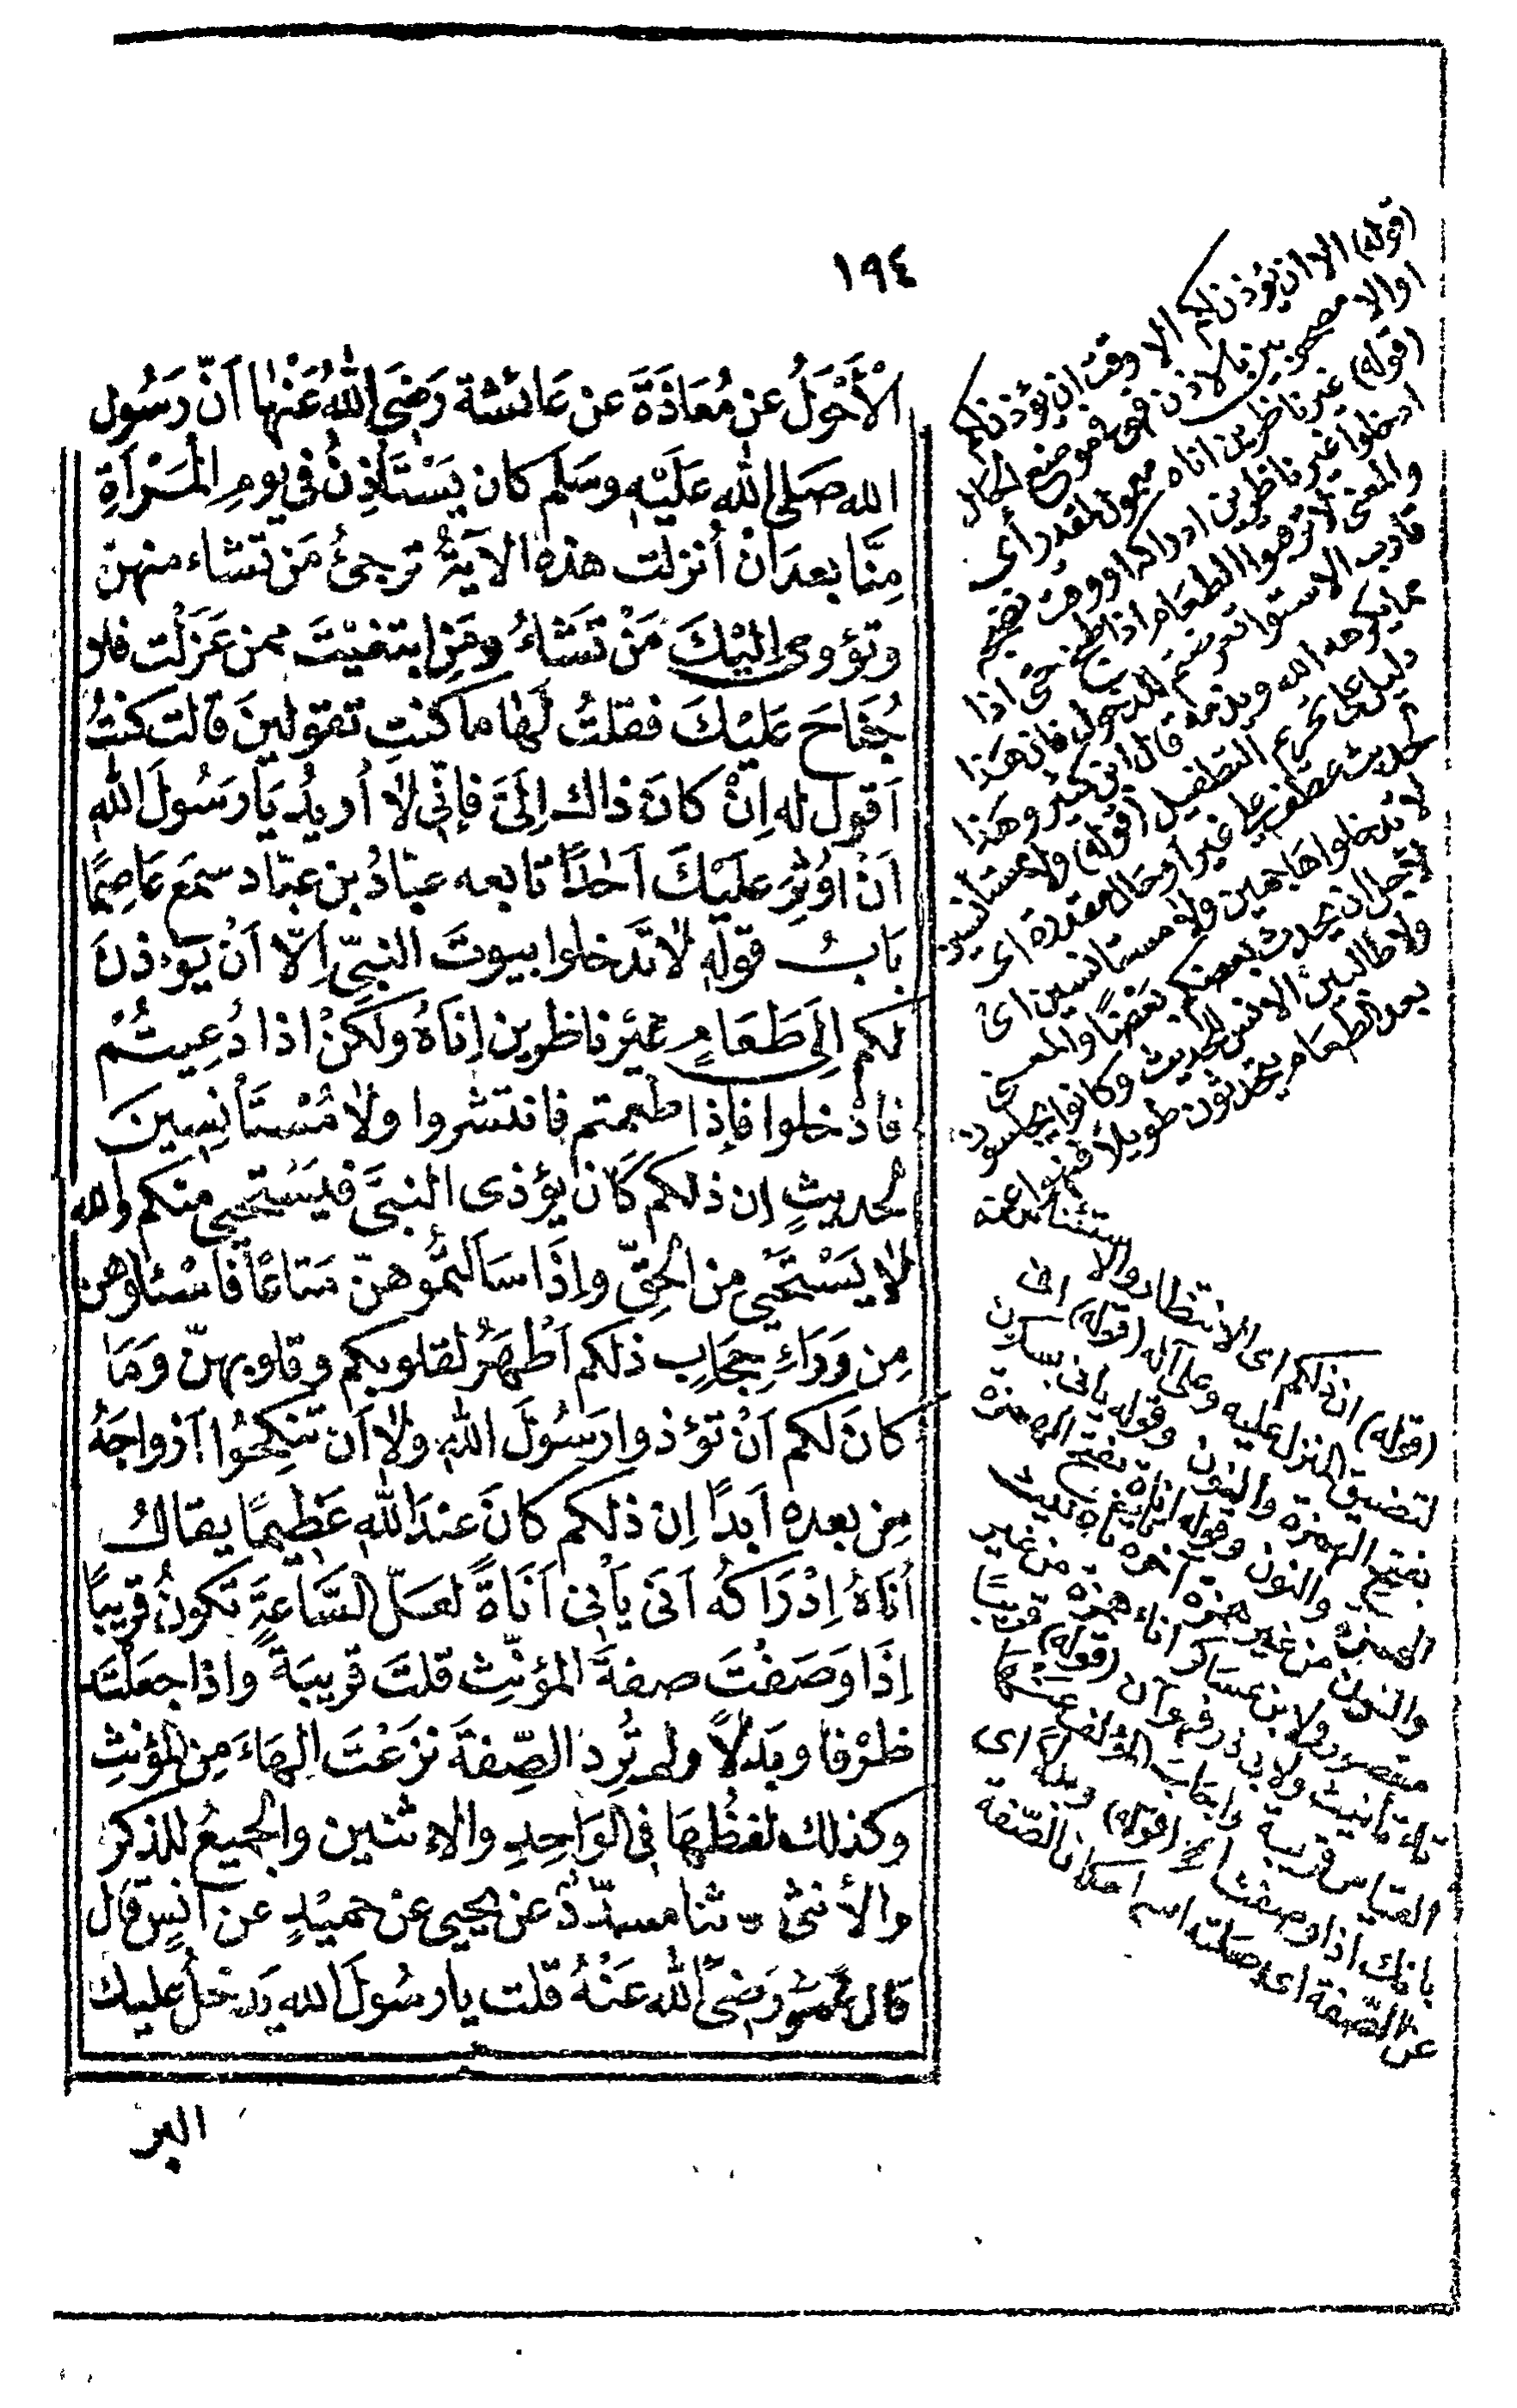 ١٩٤
الْأَحْوَلُ عن مُعَاذَةَ عن عَائشة رَضِىَ اللهُ عَنْهَا اَنّ رَسُول
الله صَلى الله عَلَيْهِ وسَلم كان يَسْتَأذِنُ فى يومِ الْمَرْاَةِ
مِنَّا بعدَ اَنْ اُنزلت هذه الآيَةُ تُرجئُ مَن تَشاء منهن
وتؤوى اِليْكَ مَنْ تَشَاءُ ومَنِ ابتغيْتَ ممن عَزَلْت فلا
جُنَاحَ عَليْكَ فقلتُ لَهَا ما كنتِ تقولينَ قالت كنتُ
اَقول له اِنْ كانَ ذاك اِلَىَّ فإنّى لا اُريدُ يَا رَسُولَ اللهِ
اَنْ اُوثِرَ عليْكَ اَحَدًا تابعه عبّادُ بن عبّاد سمعَ عَاصِمًا
بَابُ قولهِ لا تَدخلوا بيوتَ النبىّ اِلّا اَنْ يوءذنَ
لكم الَى طَعَامٍ غيْرَ ناظرين اِنَاهُ ولَكِنْ اذا دُعِيتُمْ
فادْخلوا فإذا طعمتم فانتشروا ولا مُسْتَأنِسِينَ
لحديثٍ إن ذلكم كَان يؤذى النبىَّ فيَسْتحيى منكم والله
لا يَسْتَحْيى مِن الحقِّ وإذَا سَأَلتمُوهنّ متاعًا فَاسْئلوهن
مِن وَرَاءِ حِجَابٍ ذلكم اَطْهَرُ لقلوبكم وقلوبهنّ وَمَا
كانَ لكم اَنْ تؤذوا رسُولَ اللهِ ولا اَن تنكِحُوا اَزْواجَهُ
مِن بعده اَبدًا اِن ذلكم كانَ عندَ اللهِ عَظِيمًا يقالُ
اُنَاهُ اِدْرَاكُه اَنَى يَأنِى اَنَاةً لعَلّ السَّاعةَ تَكونُ قريبًا
اِذَا وَصَفْتَ صفةَ المؤنّثِ قلتَ قريبَةً واذا جعَلْتَه
ظرْفا وبَدَلاً ولم تُرِد الصِّفةَ نزَعْتَ الهَاءَ مِن المؤنثِ
وكذلك لفظُهَا فى الوَاحِدِ والاثنين والجميعُ للذكر
والأنثى ثنا مسدّدٌ عن يحيى عن حميْدٍ عن اَنسٍ قال
قال عُمَرُ رَضِىَ اللهُ عَنْهُ قلت يا رسُولَ الله يَدخلُ عليك
البر
(قوله) الا ان يؤذن لكم الا وقت ان يؤذن لكم
او الا مصحوبين بالاذن فهو فى موضع الحال
(قوله) غير ناظرين اناه معمول لمقدر أى
ادخلوا غير ناظرين ادراكه او وقت نضجه
والمعنى لا ترقبوا الطعام اذا طبخ حتى اذا
قارب الاستوا تعرضتم للدخول فان هذا
مما يكرهه الله ويذمه قال ابن كثير وهذا
دليل على تحريم التطفيل (قوله) ولا مستأنسين
لحديث عطف على غير او حال مقدرة اى
لا تدخلوا هاجمين ولا مستانسين اى
لاجل ان يحدث بعضكم بعضًا والمعنى
ولا طالبين الانس لحديث وكانوا يجلسون
بعد الطعام يتحدثون طويلاً فنهوا عنه
(قوله) ان ذلكم اى الانتظار والاستئناس
لتضييق المنزل عليه وعلى آله (قوله) انى
بفتح الهمزة والنون وقوله يانى بسكون
الهمزة والنون وقوله اناة بفتح الهمزة
والنون من غير همزة آخره تاء تأنيث
مقصور ولابن عساكر اناء همزة من غير
تاء تأنيث ولابى ذر (قوله) قريبًا
القياس قريبة واجاب المؤلف عنها
بانك اذا وصفت الخ (قوله) وبدلاً اى
عن الصّفة اى